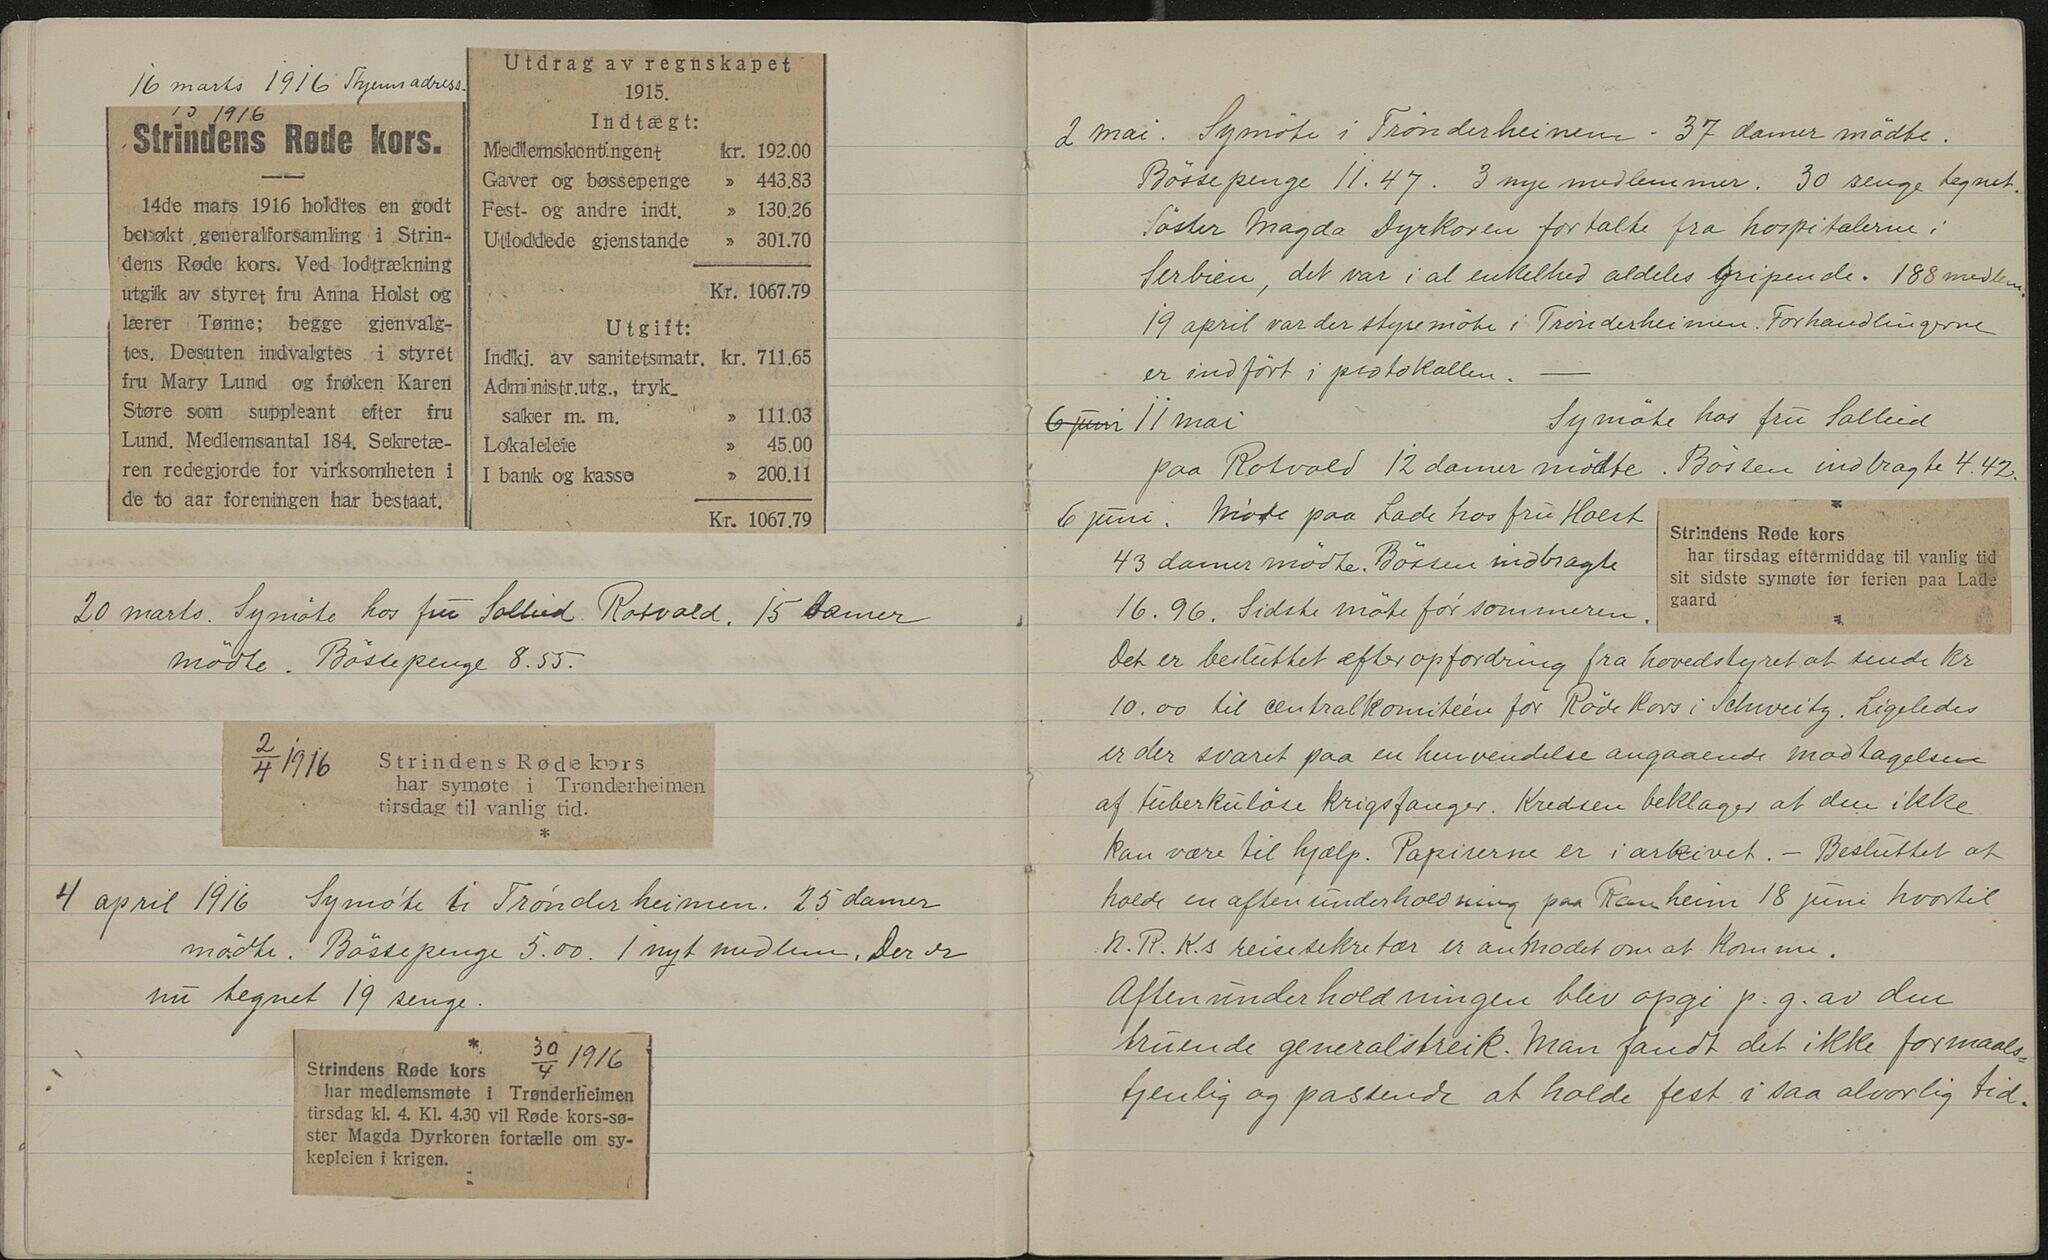 16 marts 1916
15 1916
Strindens Røde kors.
14de mars 1916 holdtes en godt
besøkt generalforsamling i Strin-
dens Røde kors. Ved lodtrækning
utgik av styret fru Anna Holst og
lærer Tønne; begge gjenvalg-
tes. Desuten indvalgtes i styret
fru Mary Lund og frøken Karen
Støre som suppleant efter fru
Lund. Medlemsantal 184. Sekretæ-
ren redegjorde for virksomheten i
de to aar foreningen har bestaat.
Utdrag av regnskapet
1915.
Indtægt:
Medlemskontingent kr. 192.00
Gaver og bøssepenge » 443.83
Fest- og andre indt. » 130.26
Utloddede gjenstande » 301.70
Kr. 1067.79
Utgift:
Indkj. av sanitetsmatr. kr. 711.65
Administr.utg., tryk-
saker m. m. » 111.03
Lokaleleie » 45.00
I bank og kasse » 200.11
Kr. 1067.79
20 marts. Symöte hos fru Sollied Rotvold. 15 damer
mödte. Bössepenge 8.55.
2/4 1916
Strindens Røde kors
har symøte i Trønderheimen
tirsdag til vanlig tid.
*
4 april 1916 Symöte i Trönderheimen. 25 damer
mödte. Bössepenge 5.00. 1 nyt medlem. Der er
nu tegnet 19 senge.
* 30/4 1916
Strindens Røde kors
har medlemsmøte i Trønderheimen
tirsdag kl. 4. Kl. 4.30 vil Røde kors-sø-
ster Magda Dyrkoren fortælle om sy-
kepleien i krigen.
2 mai. Symöte i Trönderheimen. 37 damer mödte.
Bössepenge 11.47. 3 nye medlemmer. 30 senge tegnet.
Söster Magda Dyrkoren fortalte fra hospitalerne i
Serbien, det var i al enkelhed aldeles gripende. 188 medlem.
19 april var der styremöte i Trönderheimen. Forhandlingerne
er indfört i protokollen. —
6 juni 11 mai Symöte hos fru Sollied
paa Rotvold 12 damer mödte. Bössen indbragte 4.42.
6 juni. Möte paa Lade hos fru Holst
43 damer mödte. Bössen indbragte
16.96. Sidste möte för sommeren.
*
Strindens Røde kors
har tirsdag eftermiddag til vanlig tid
sit sidste symøte før ferien paa Lade
gaard
*
Det er besluttet efter opfordring fra hovedstyret at sende kr
10.00 til centralkomitéen for Röde Kors i Schweitz. Ligeledes
er der svaret paa en henvendelse angaaende modtagelsen
af tuberkulöse krigsfanger. Kredsen beklager at den ikke
kan være til hjælp. Papirerne er i arkivet. – Besluttet at
holde en aftenunderholdning paa Ranheim 18 juni hvortil
N. R. K.s reisesekretær er anmodet om at komme.
Aftenunderholdningen blev opgi p. g. av den
truende generalstreik. Man fandt det ikke formaals=
tjenlig og passende at holde fest i saa alvorlig tid.